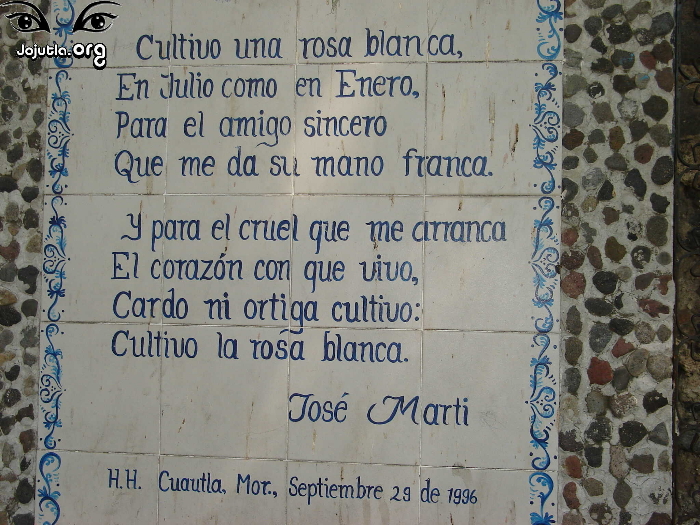 Jojutla.org
Cultivo una rosa blanca,
En Julio como en Enero,
Para el amigo sincero
Que me da su mano franca.
Y para el cruel que me arranca
El corazón con que vivo,
Cardo ni ortiga cultivo:
Cultivo la rosa blanca.
José Marti
H.H. Cuautla, Mor., Septiembre 29 de 1996